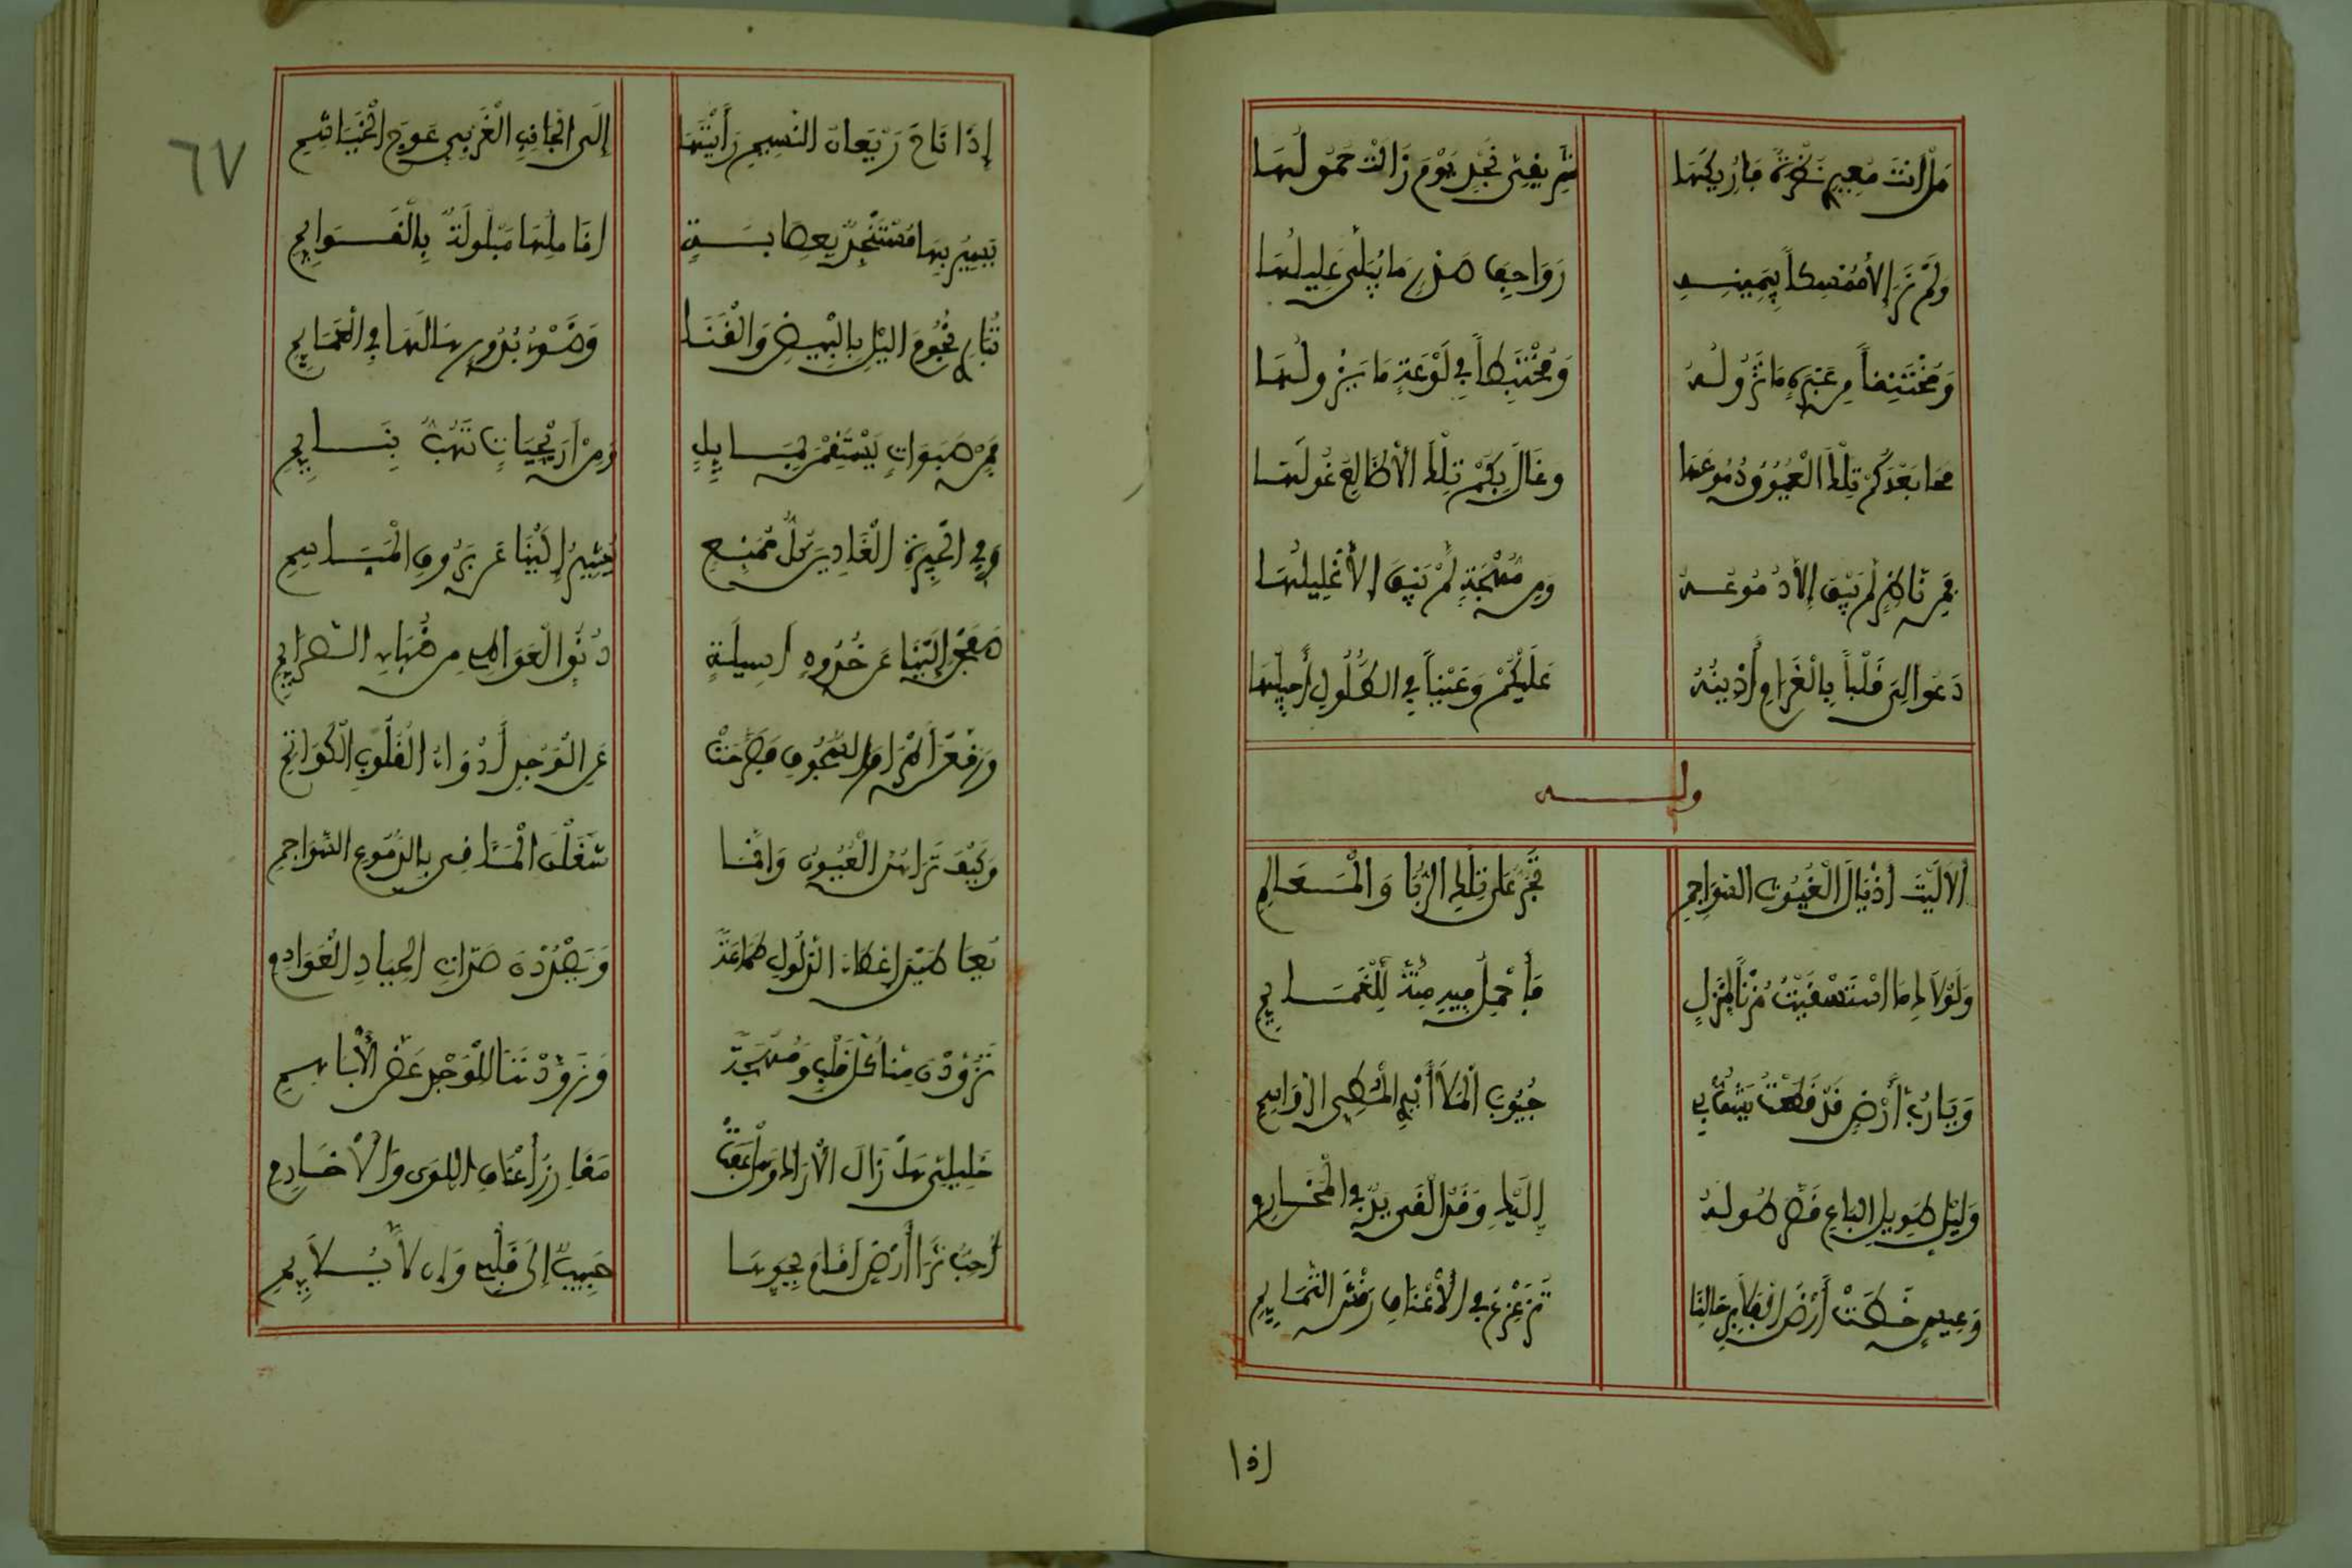 هل انت معيري نظرة ما أريكها شرقي نجد يوم زالت حمولها
ولم تر إلا ممسكاً بيمينه رواجف صدر ما يبلى غليلها
ومختنفاً من عبرة ما تزوله ومختبطاً في لوعة ما يزولها
محا بعدكم تلك العيون دموعها وغال بكم تلك الأظالع غولها
فمن ناظر لم يبق إلا دموعه ومن مهجة لم تبق إلا غليلها
دعوا لي قلباً بالغرام أذيبه عليكم وعيناً في الطلول أجيلها
وله
ألا ليت أذيال الغيوث السواجم تجر على تلك الربا والمعالم
ولولاك ما استسقيت مزناً لمنزل ولا حملت فيه منة للغمائم
ويا رب أرض قد قطعت تشق بي جيوب الملا أيدي المطي الرواسم
وليل طويل الباع قصر طوله إليك وقد ألقى يدا في المخارم
وعيس خطت أرض الفلا برحالنا تزعزع في الأعناق رقش التمائم
اذا
٦٧
إذا ناح ريعان النسيم رأيتها إلى الجانب الغربي عوج الخياشم
يسير بها مستنجد بعصابة أناملها مبلولة بالقوائم
تباري نجوم الليل بالبيض والقنا وضوء بدور هالها في الغمائم
فمن هبوات يستقمن بمائل ومن أريحيات تهب بنائم
وفي الجيرة الغادين كل ممنع يشير إلينا عن بروق المباسم
صفحن إلينا عن خدود أسيلة دنو العوالي من ظباء الصرائم
ورفعن أهداب السجوف فصرحت عن الوجد أدواء القلوب الكواتم
وكيف تراهن العيون وإنما شغلن المئاقي بالدموع السواجم
نعاطين إعطاء الذلول طماعة ويصددن صدات الجياد العواذم
تزودن منا كل قلب ومهجة وزودننا للوجد عض الأباهم
خليلي هل زال الأراك وهل عفت مغارز أعناق اللوى والأخارم
أحب ثرا أرض أقام بجوها حبيب إلى قلبي وإن لا يلائم